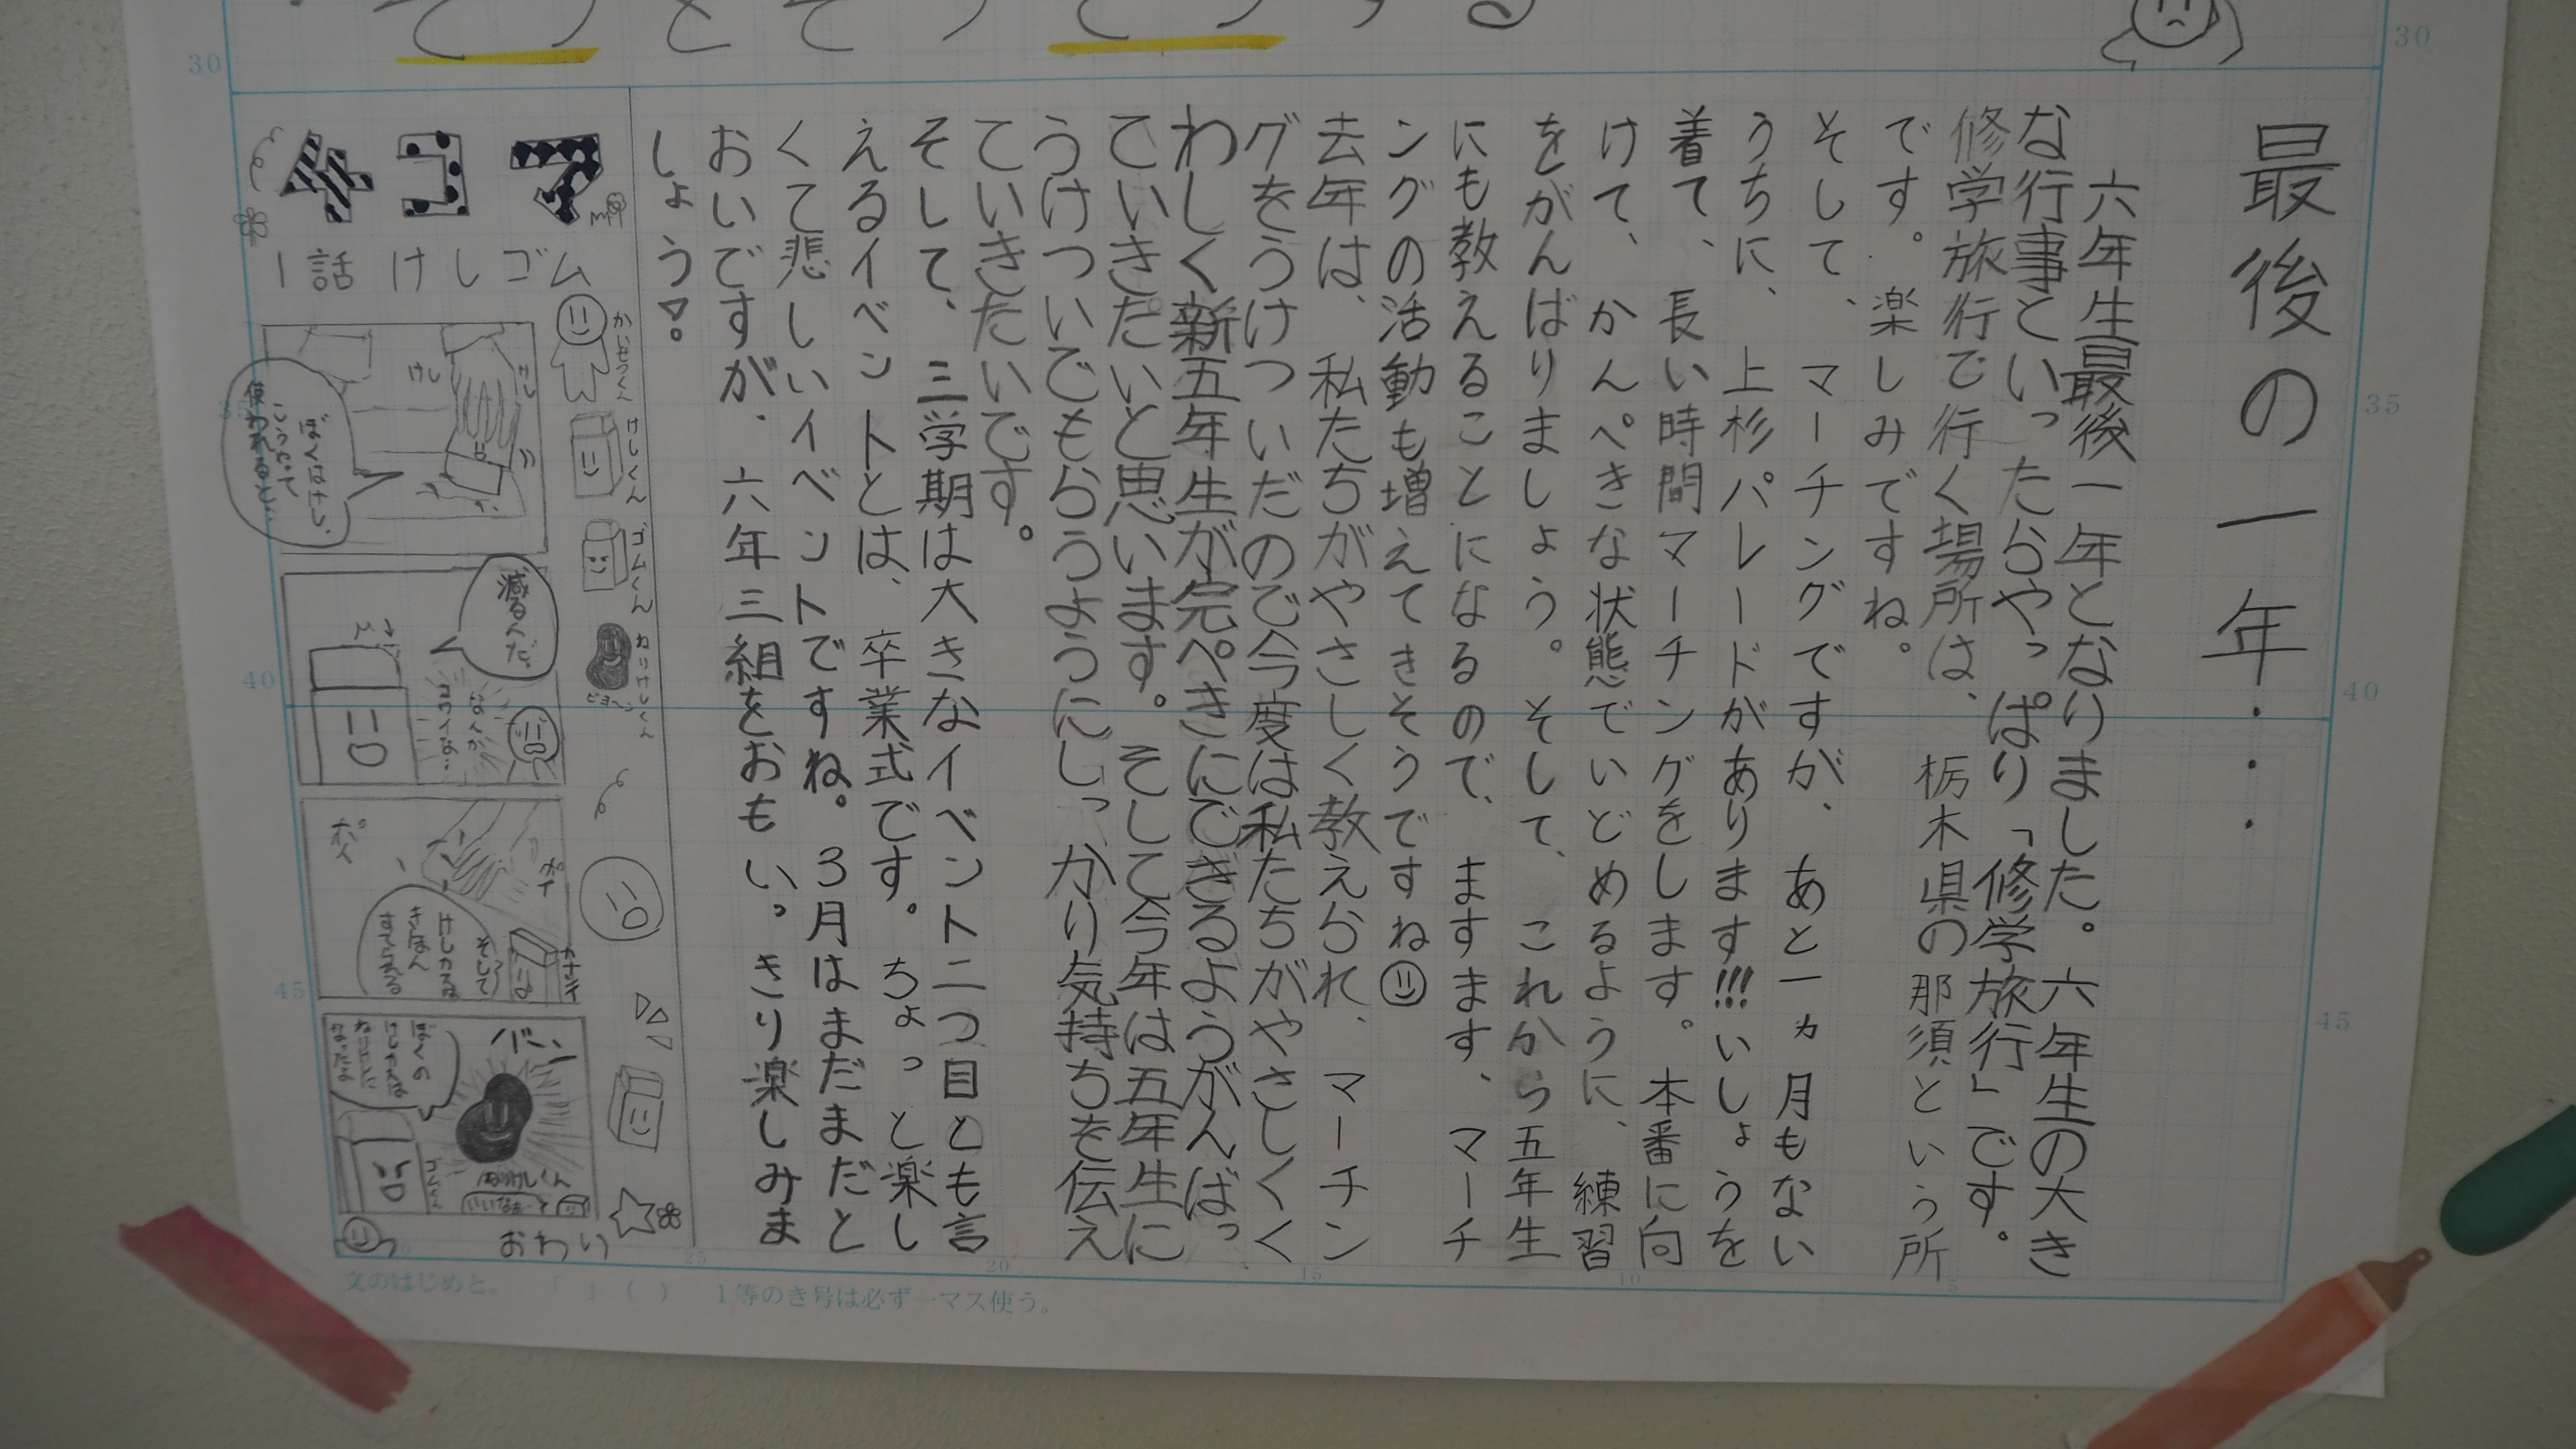 最後の一年・・・
六年生最後一年となりました。六年生の大き
な行事といったらやっぱり「修学旅行」です。
修学旅行で行く場所は、栃木県の那須という所
です。楽しみですね。
そして、マーチングですが、あと一ヵ月もない
うちに、上杉パレードがあります!!!いしょうを
着て、長い時間マーチングをします。本番に向
けて、かんぺきな状態でいどめるように、練習
をがんばりましょう。そして、これから五年生
にも教えることになるので、ますます、マーチ
ングの活動も増えてきそうですね
去年は、私たちがやさしく教えられ、マーチン
グをうけついだので今度は私たちがやさしくく
わしく新五年生が完ぺきにできるようがんばっ
ていきたいと思います。そして今年は五年生に
うけついでもらうようにしっかり気持ちを伝え
ていきたいです。
そして、三学期は大きなイベント二つ目とも言
えるイベントとは、卒業式です。ちょっと楽し
くて悲しいイベントですね。3月はまだまだと
おいですが、六年三組をおもいっきり楽しみま
しょう!。
4コマ
1話 けしゴム
けしくん
ゴムくん
ねりけしくん
ビヨーン
けし
けし
ぼくはけしゴム
こうやって
使われると…
減るんだ。
なんか
コワイな…
ポイ
そして
けしカスは
きほん
すてられる
バーン
ぼくの
けしカスは
ねりけしに
なったよ
ねりけしくん
ゴムくん
いいなぁ…
おわり
30
30
35
40
40
45
45
25
20
15
10
5
文のはじめと。「 」( ) 1等のき号は必ず一マス使う。